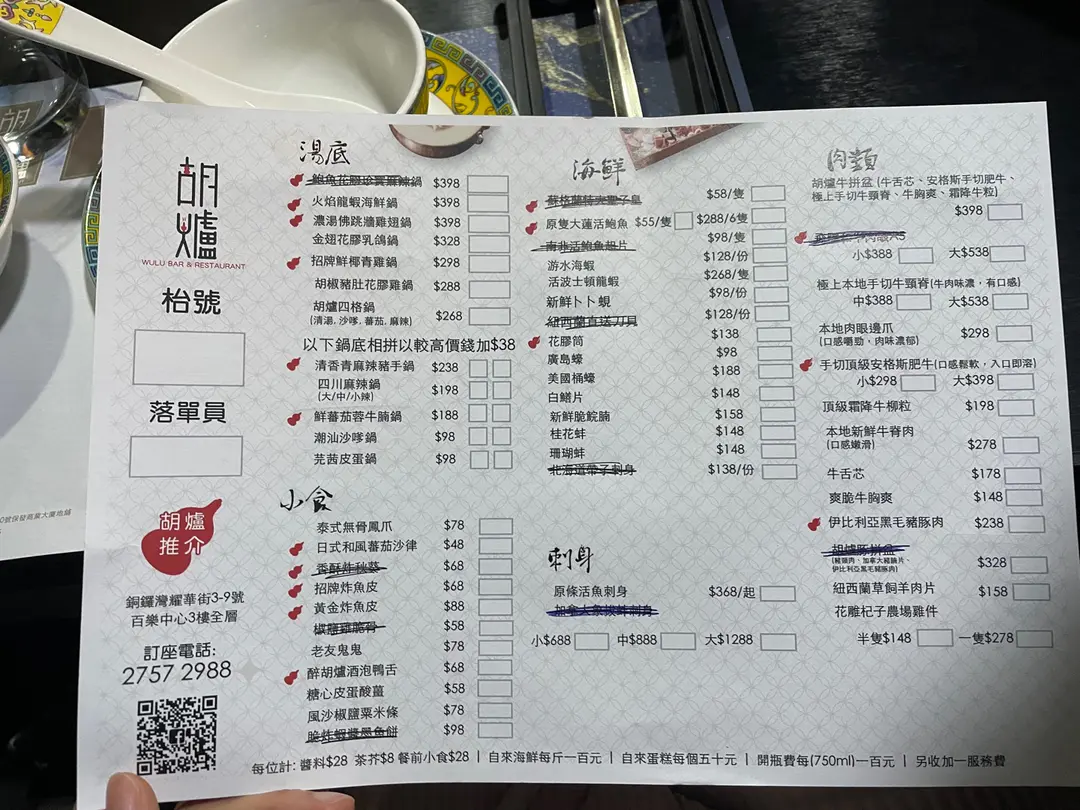 胡爐
WULU BAR & RESTAURANT
枱號
落單員
胡爐
推介
銅鑼灣耀華街3-9號
百樂中心3樓全層
訂座電話:
2757 2988
湯底
鮑魚花膠珍寶麻辣鍋 $398
火焰龍蝦海鮮鍋 $398
濃湯佛跳牆雞翅鍋 $398
金翅花膠乳鴿鍋 $328
招牌鮮椰青雞鍋 $298
胡椒豬肚花膠雞鍋 $288
胡爐四格鍋 $268
(清湯, 沙嗲, 蕃茄, 麻辣)
以下鍋底相拼以較高價錢加$38
清香青麻辣豬手鍋 $238
四川麻辣鍋 $198
(大/中/小辣)
鮮蕃茄蓉牛腩鍋 $188
潮汕沙嗲鍋 $98
芫茜皮蛋鍋 $98
小食
泰式無骨鳳爪 $78
日式和風蕃茄沙律 $48
香酥炸秋葵 $68
招牌炸魚皮 $68
黃金炸魚皮 $88
椒鹽雞脆骨 $58
老友鬼鬼 $78
醉胡爐酒泡鴨舌 $68
糖心皮蛋酸薑 $58
風沙椒鹽粟米條 $78
脆炸蝦醬墨魚餅 $98
海鮮
$58/隻
原隻大蓮活鮑魚 $55/隻 $288/6隻
南非活鮑魚翅片 $98/隻
游水海蝦 $128/份
活波士頓龍蝦 $268/隻
新鮮卜卜蜆 $98/份
紐西蘭直送刀貝 $128/份
花膠筒 $138
廣島蠔 $98
美國桶蠔 $188
白鱔片 $148
新鮮脆鯇腩 $158
桂花蚌 $148
珊瑚蚌 $148
北海道帶子刺身 $138/份
刺身
原條活魚刺身 $368/起
加拿大象拔蚌刺身
小$688 中$888 大$1288
肉類
胡爐牛拼盆 (牛舌芯、安格斯手切肥牛、
極上手切牛頸脊、牛胸爽、霜降牛粒)
$398
小$388 大$538
極上本地手切牛頸脊(牛肉味濃，有口感)
中$388 大$538
本地肉眼邊爪 $298
(口感嚼勁，肉味濃郁)
手切頂級安格斯肥牛(口感鬆軟，入口即溶)
小$298 大$398
頂級霜降牛柳粒 $198
本地新鮮牛脊肉 $278
(口感嫩滑)
牛舌芯 $178
爽脆牛胸爽 $148
伊比利亞黑毛豬豚肉 $238
胡爐豚拼盆 $328
(豬頸肉、加拿大豬腩片、
伊比利亞黑毛豬豚肉)
紐西蘭草飼羊肉片 $158
花雕杞子農場雞件
半隻$148 一隻$278
每位計: 醬料$28 茶芥$8 餐前小食$28 | 自來海鮮每斤一百元 | 自來蛋糕每個五十元 | 開瓶費每(750ml)一百元 | 另收加一服務費